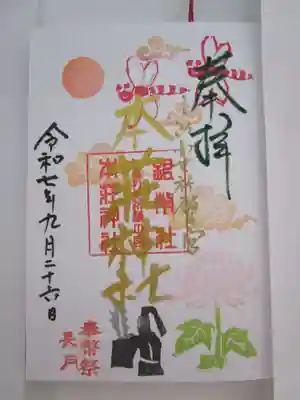 奉拝
本荘神社
銀幣社
本荘神社
令和七年九月二十六日
奉幣祭
長月